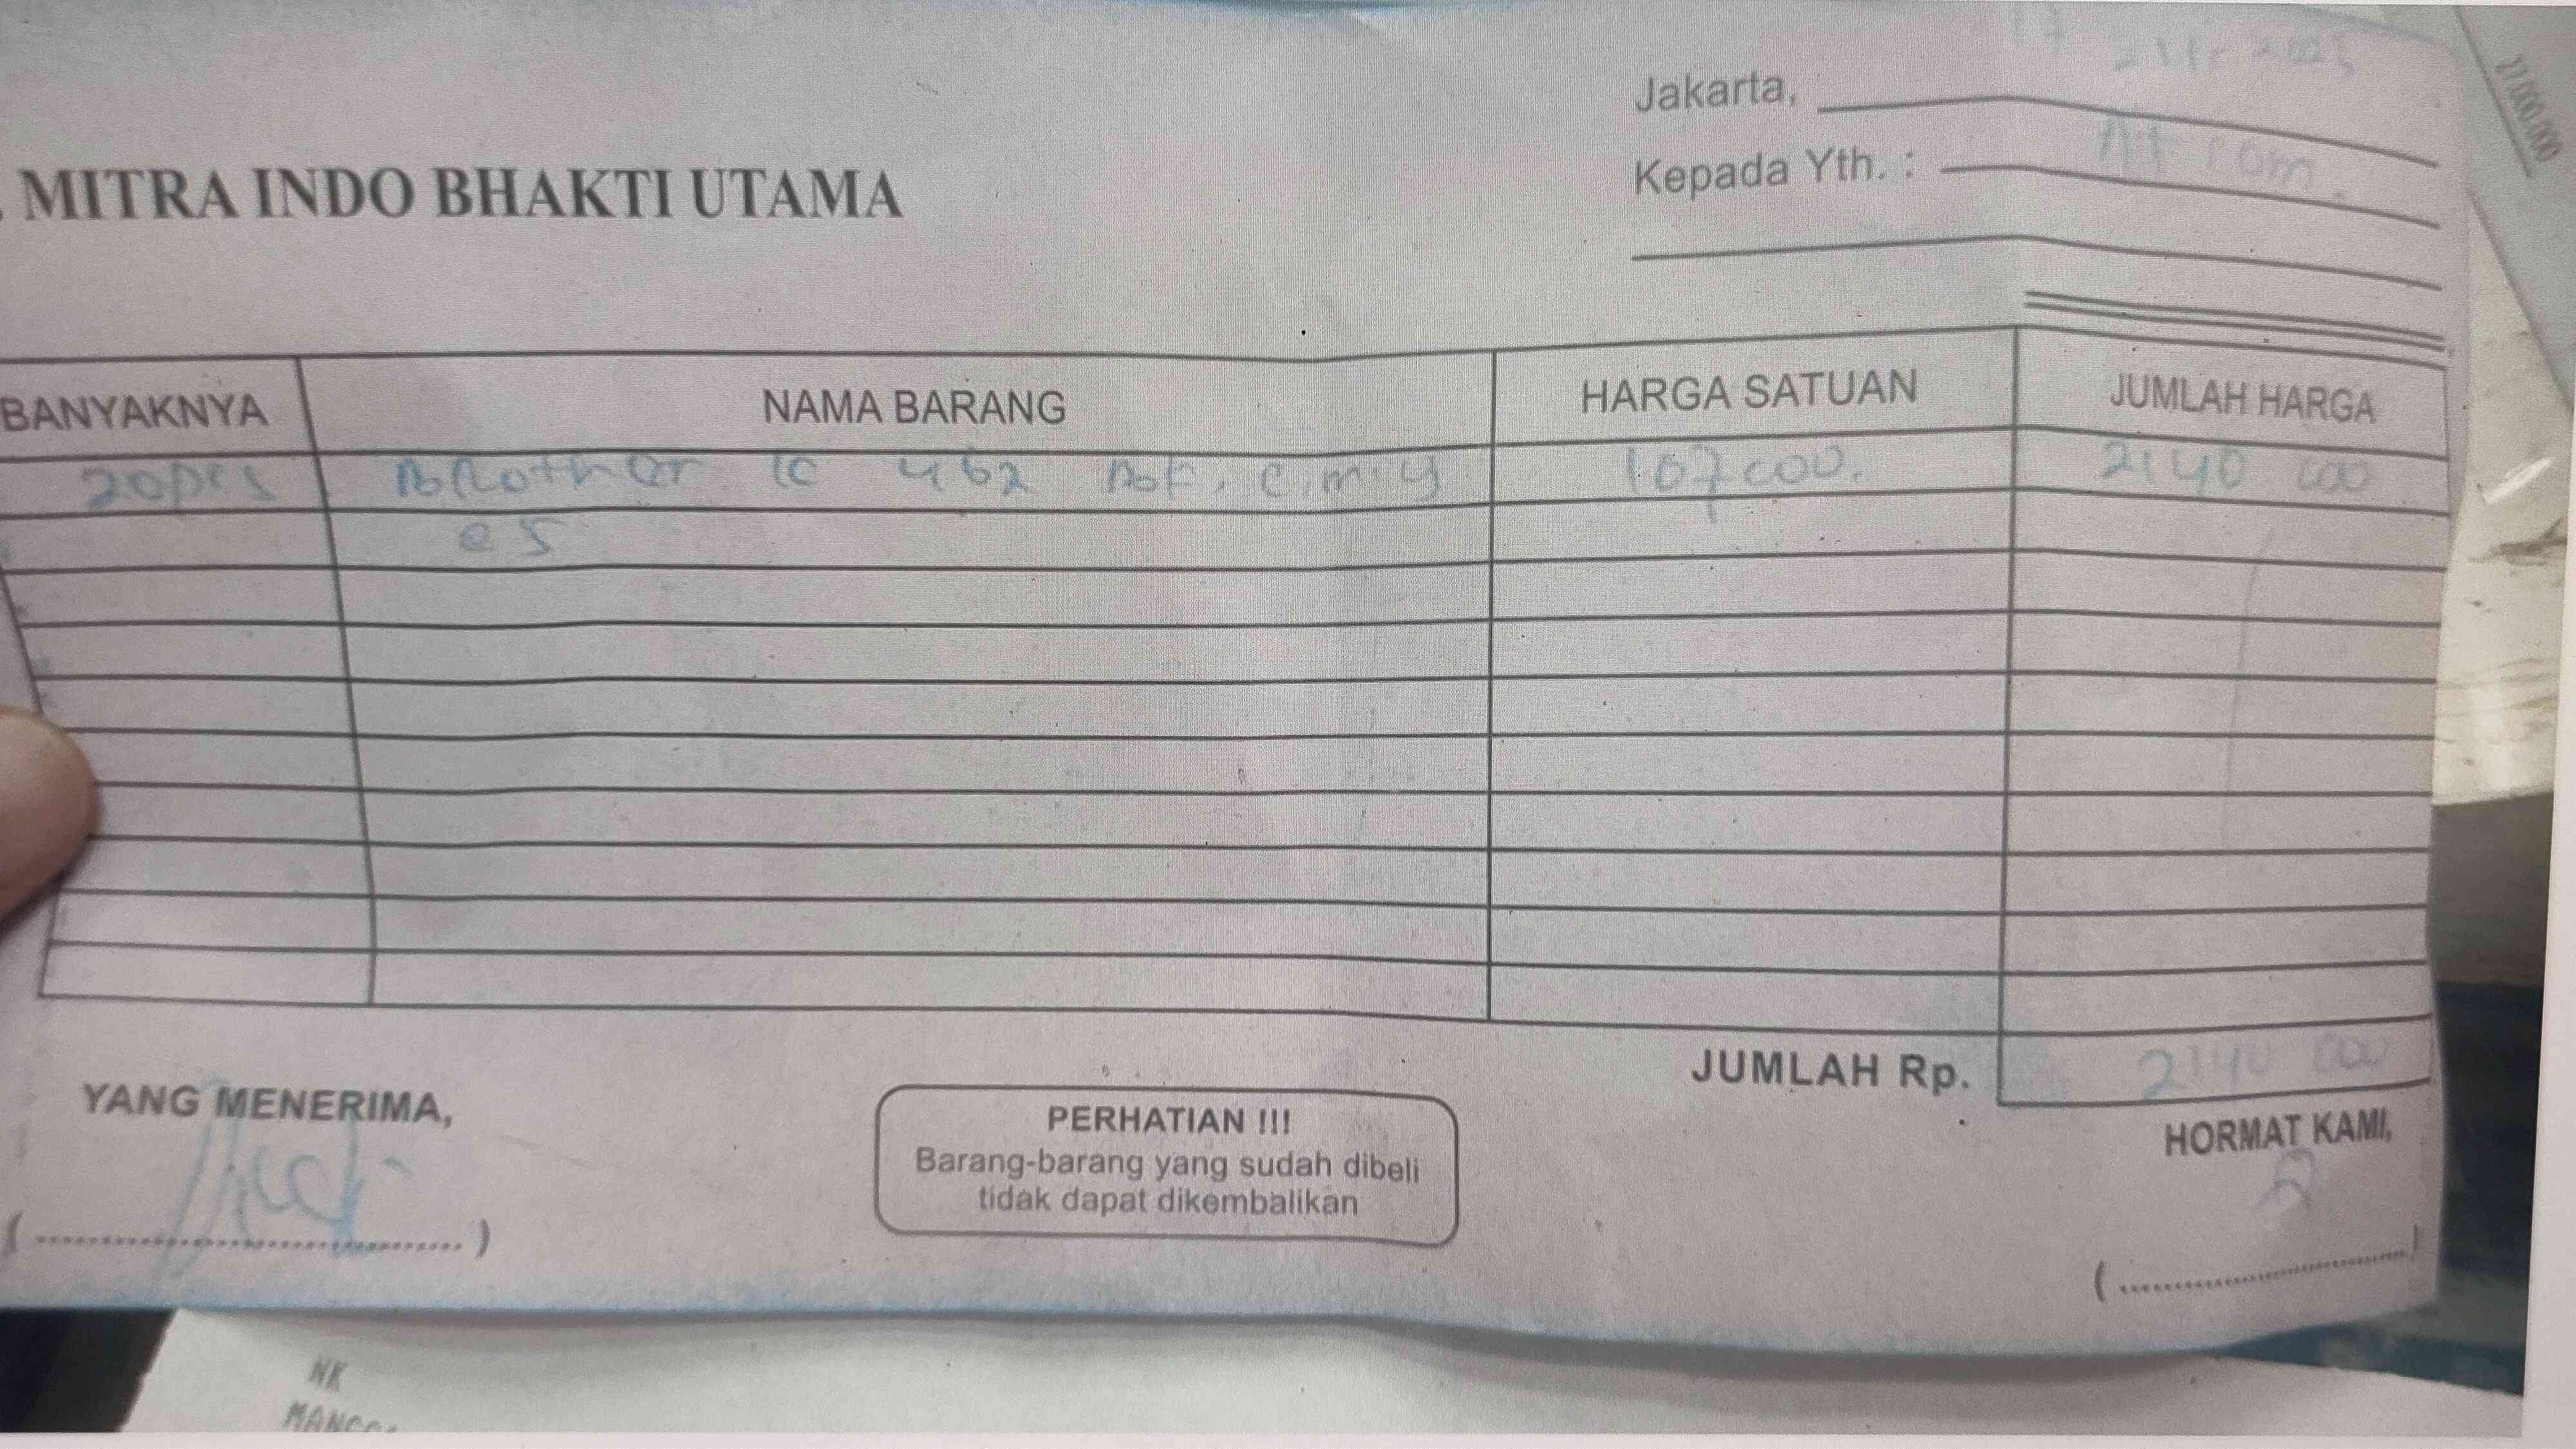 Jakarta,
Kepada Yth. :
MITRA INDO BHAKTI UTAMA
BANYAKNYA NAMA BARANG HARGA SATUAN JUMLAH HARGA
20pcs Brother lc 462 BK, c, m, y 107 000. 2140 000
@ 5
JUMLAH Rp. 2140 000
YANG MENERIMA,
HORMAT KAMI,
PERHATIAN !!!
Barang-barang yang sudah dibeli
tidak dapat dikembalikan
NK